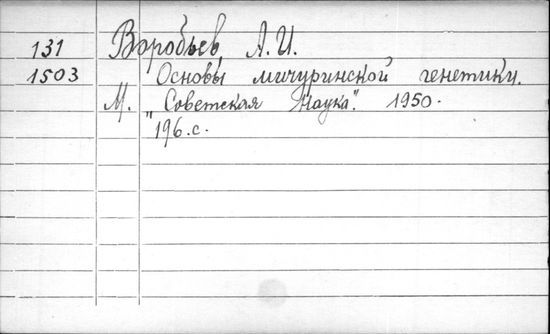 131 Воробьев А.И.
1503 Основы мичуринской генетики.
М. "Советская Наука". 1950.
196.с.